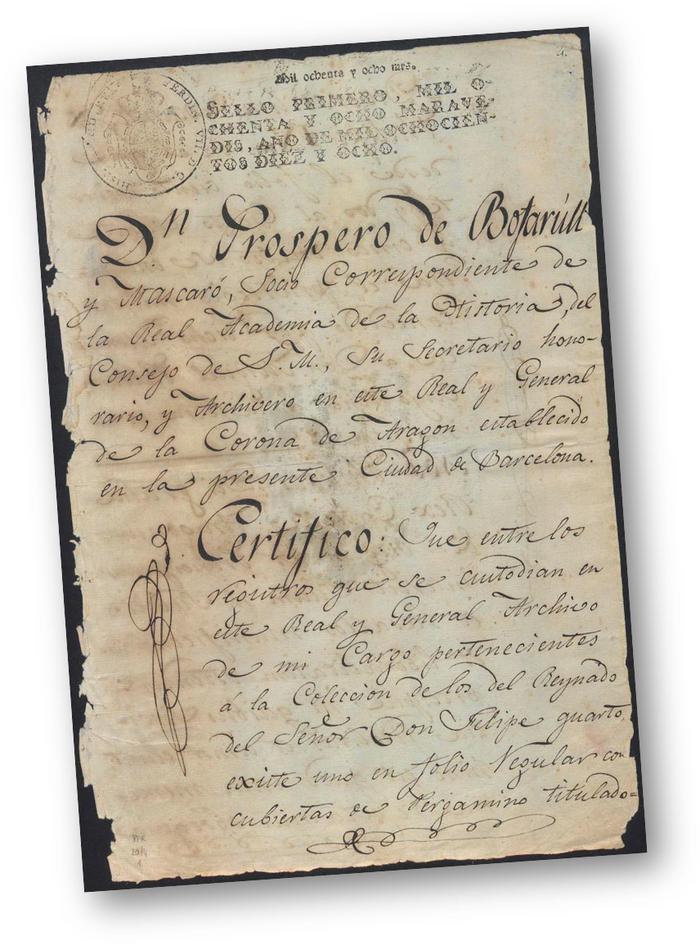 Mil ochenta y ocho mrs.
SELLO PRIMERO, MIL O-
CHENTA Y OCHO MARAVE-
DIS, AÑO DE MIL OCHOCIEN-
TOS DIEZ Y OCHO.
Dn. Prospero de Bofarúll
y Mascaró, Socio Correspondiente de
la Real Academia de la Historia, del
Consejo de S. M., su Secretario hono-
rario, y Archivero en este Real y General
de la Corona de Aragon establecido
en la presente Ciudad de Barcelona.
Certifico: Que entre los
registros que se custodian en
este Real y General Archivo
de mi Cargo pertenecientes
á la Coleccion de los del Reynado
del Señor Don Felipe quarto,
existe uno en folio Regular con
cubiertas de Pergamino titulado=